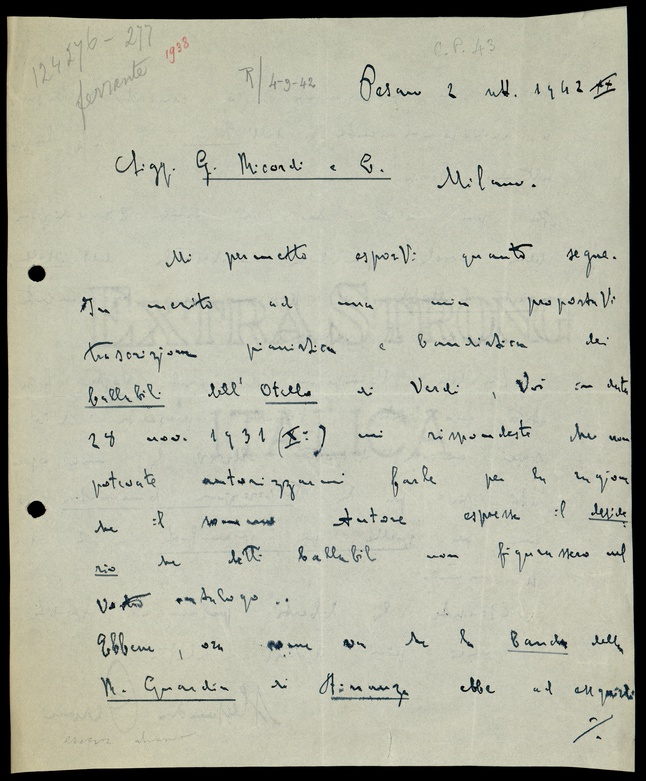 124276-277
ferrante
1938
R/4-9-42
C.P. 43
Pesaro 2 sett. 1942 XX
Sigg. G. Ricordi e C.
Milano.
Mi permetto esporVi quanto segue.
In merito ad una mia propostaVi
trascrizione pianistica e bandistica dei
ballabili dell'Otello di Verdi, Voi in data
28 nov. 1931 (X°) mi rispondeste che non
potevate autorizzarmi farle per la ragione
che il sommo Autore espresse il deside
rio che detti ballabili non figurassero nel
Vostro catalogo..
Ebbene, ora che la Banda della
R. Guardia di Finanza ebbe ad eseguirli
./.